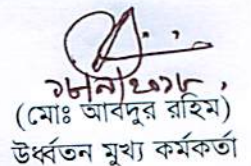 (মোঃ আবদুর রাহিম)
উর্ধ্বতন মুখ্য কর্মকর্তা